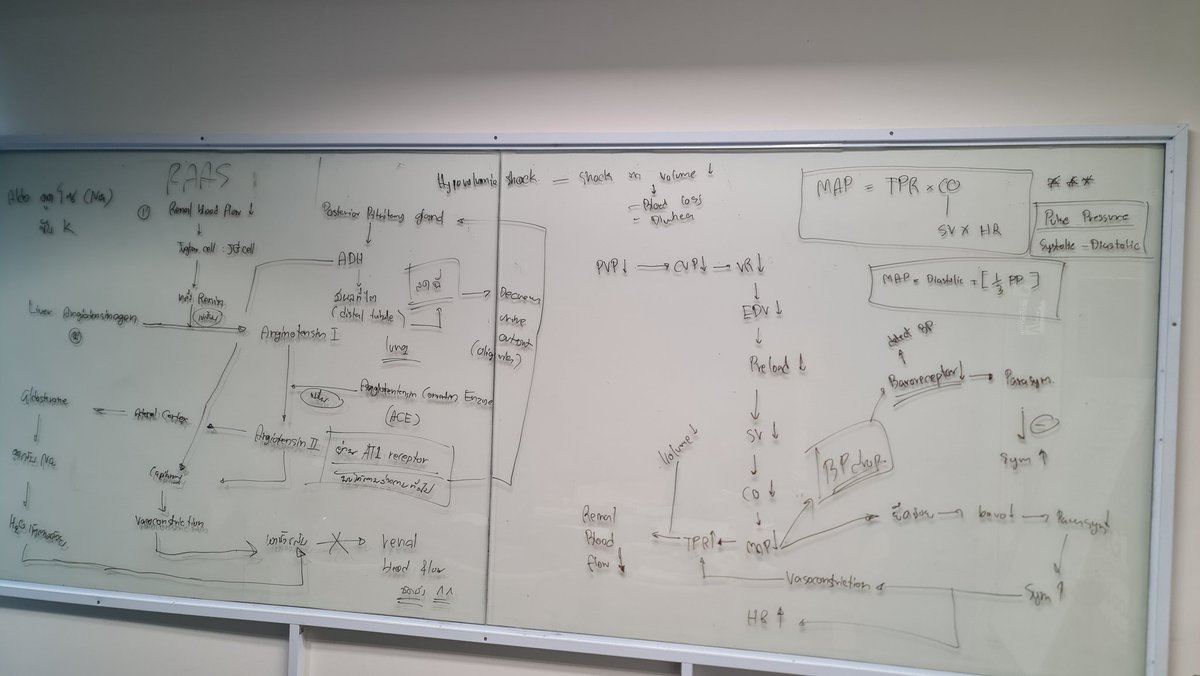 RAAS
Aldo ดูดโซ (Na)
ขับ K
① Renal blood flow ↓
Juxta cell : JG cell
หลั่ง Renin
Liver Angiotensinogen
②
Angiotensin I
Angiotensin Convertin Enzyme
(ACE)
Angiotensin II
Adrenal Cortex
Aldosterone
ดูดกลับ Na
Capillary
Vasoconstriction
renal
blood flow
ผ่าน AT1 receptor
Posterior Pituitary gland
ADH
(distal tubule)
lung
Decrease
urine
output
(oliguria)
Hypovolumic shock = shock จาก Volume ↓
- Blood loss
- Diarrhea
PVP↓ → CVP↓ → VR↓
EDV ↓
Preload ↓
SV ↓
CO ↓
MAP↓
TPR↑
Volume ↓
Renal
Blood
flow ↓
BP drop
Baroreceptor↓
detect BP
Parasym.
⊖
Sym ↑
baro↓ → Parasym↓
Sym ↑
Vasoconstriction
HR ↑
MAP = TPR × CO
SV × HR
***
Pulse Pressure
Systolic - Diastolic
MAP = Diastolic + [⅓ PP]